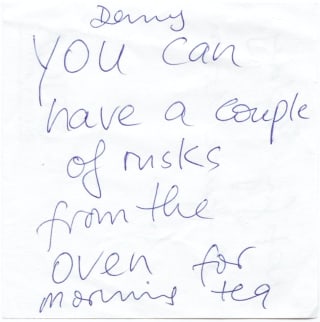 Danny
you can
have a couple
of rusks
from the
oven for
morning tea